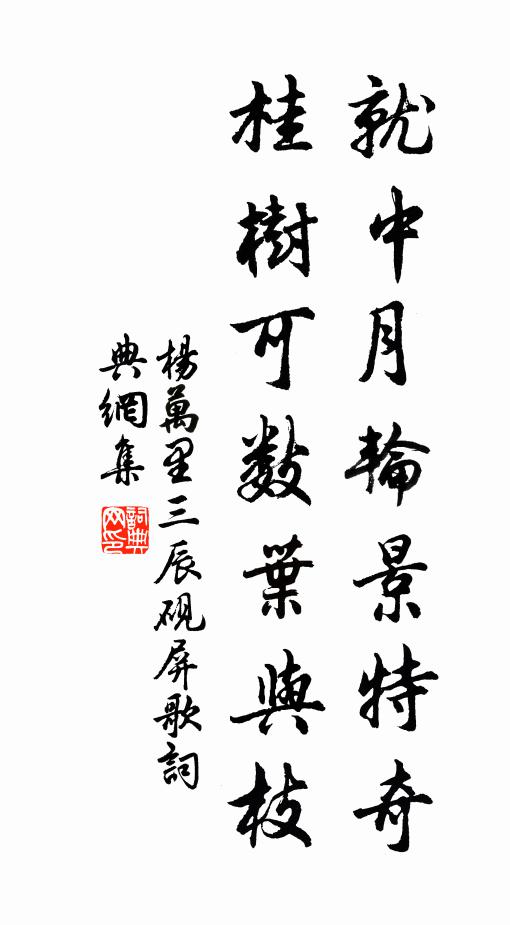 就中月輪景特奇
桂樹可數葉與枝
楊萬里三辰硯屏歌詞
典網集
詞典網印